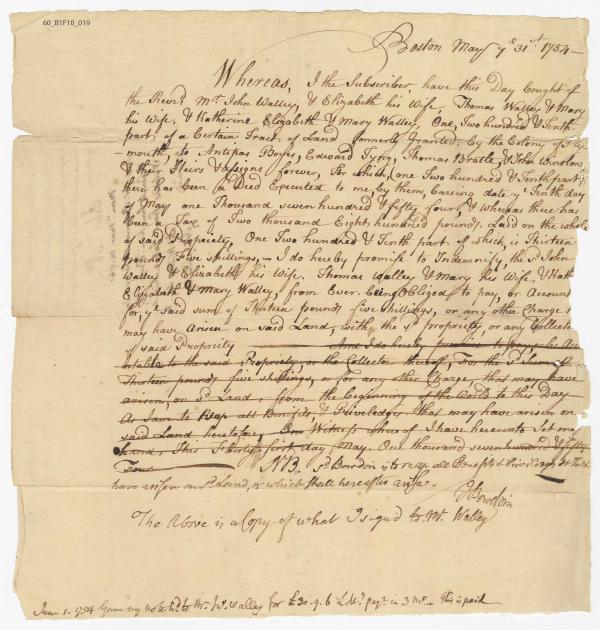 60_B1F10_019
Boston May ye 31st. 1754—
Whereas, I the Subscriber, have this Day bought of
the Revrd. Mr. John Walley, & Elizabeth his Wife, Thomas Walley & Mary
his wife, & Katherine Elizabeth & Mary Walley, One, Two hundred & Tenth
part, of a Certain Tract of Land formerly Granted, by the Colony of Ply-
-mouth, to Antipas Boyes, Edward Tyng, Thomas Bratle, & John Winslow,
& their Heirs & Assigns forever, For which, (one Two hundred & Tenth part,)
there has been a Deed Executed to me, by them, bareing date ye Tenth day
of May one Thousand seven hundred & fifty four, & whereas there has
been a Tax of Two thousand Eight hundred pounds, Laid on the whole
of said Propriety, One Two hundred & Tenth part of which, is Thirteen
pounds Five Shillings,— I do hereby promise to Indemnify, the sd. John
Walley & Elizabeth his Wife, Thomas Walley & Mary his Wife, & Kath
Elizabeth & Mary Walley, from Ever being Obliged to pay, or Account
for, ye said sum of Thirteen pounds five shillings, or any other Charge
may have Arisen on said Land, with the sd. propriety, or any Collector
of said Propriety And I do hereby promise to pay, or be Acco
ntable to the said Propriety, or the Collector thereof, For the sd. Sum of
Thirteen pounds five shillings, or for any other Charge, that may have
arisen, on sd. Land, from the beginning of the World to this Day
As I am to Reap all Benefits, & Priviledges that may have arisen on
said Land heretofore, In Witness whereof I have hereunto Set my
hand, This Thirty first day May. One thousand seven hundred & fifty
Four NB. sd. Bowdoin is to reap all Benefits & Priviledges
have arisen on sd. Land, or which shall hereafter arise.
J Bowdoin
The Above is a Copy of what I sign'd to Mr. Walley
June 1. 1754 Gave my note to Mr. Jno. Walley for £30.9.6 payt. in 3 mo. This is paid